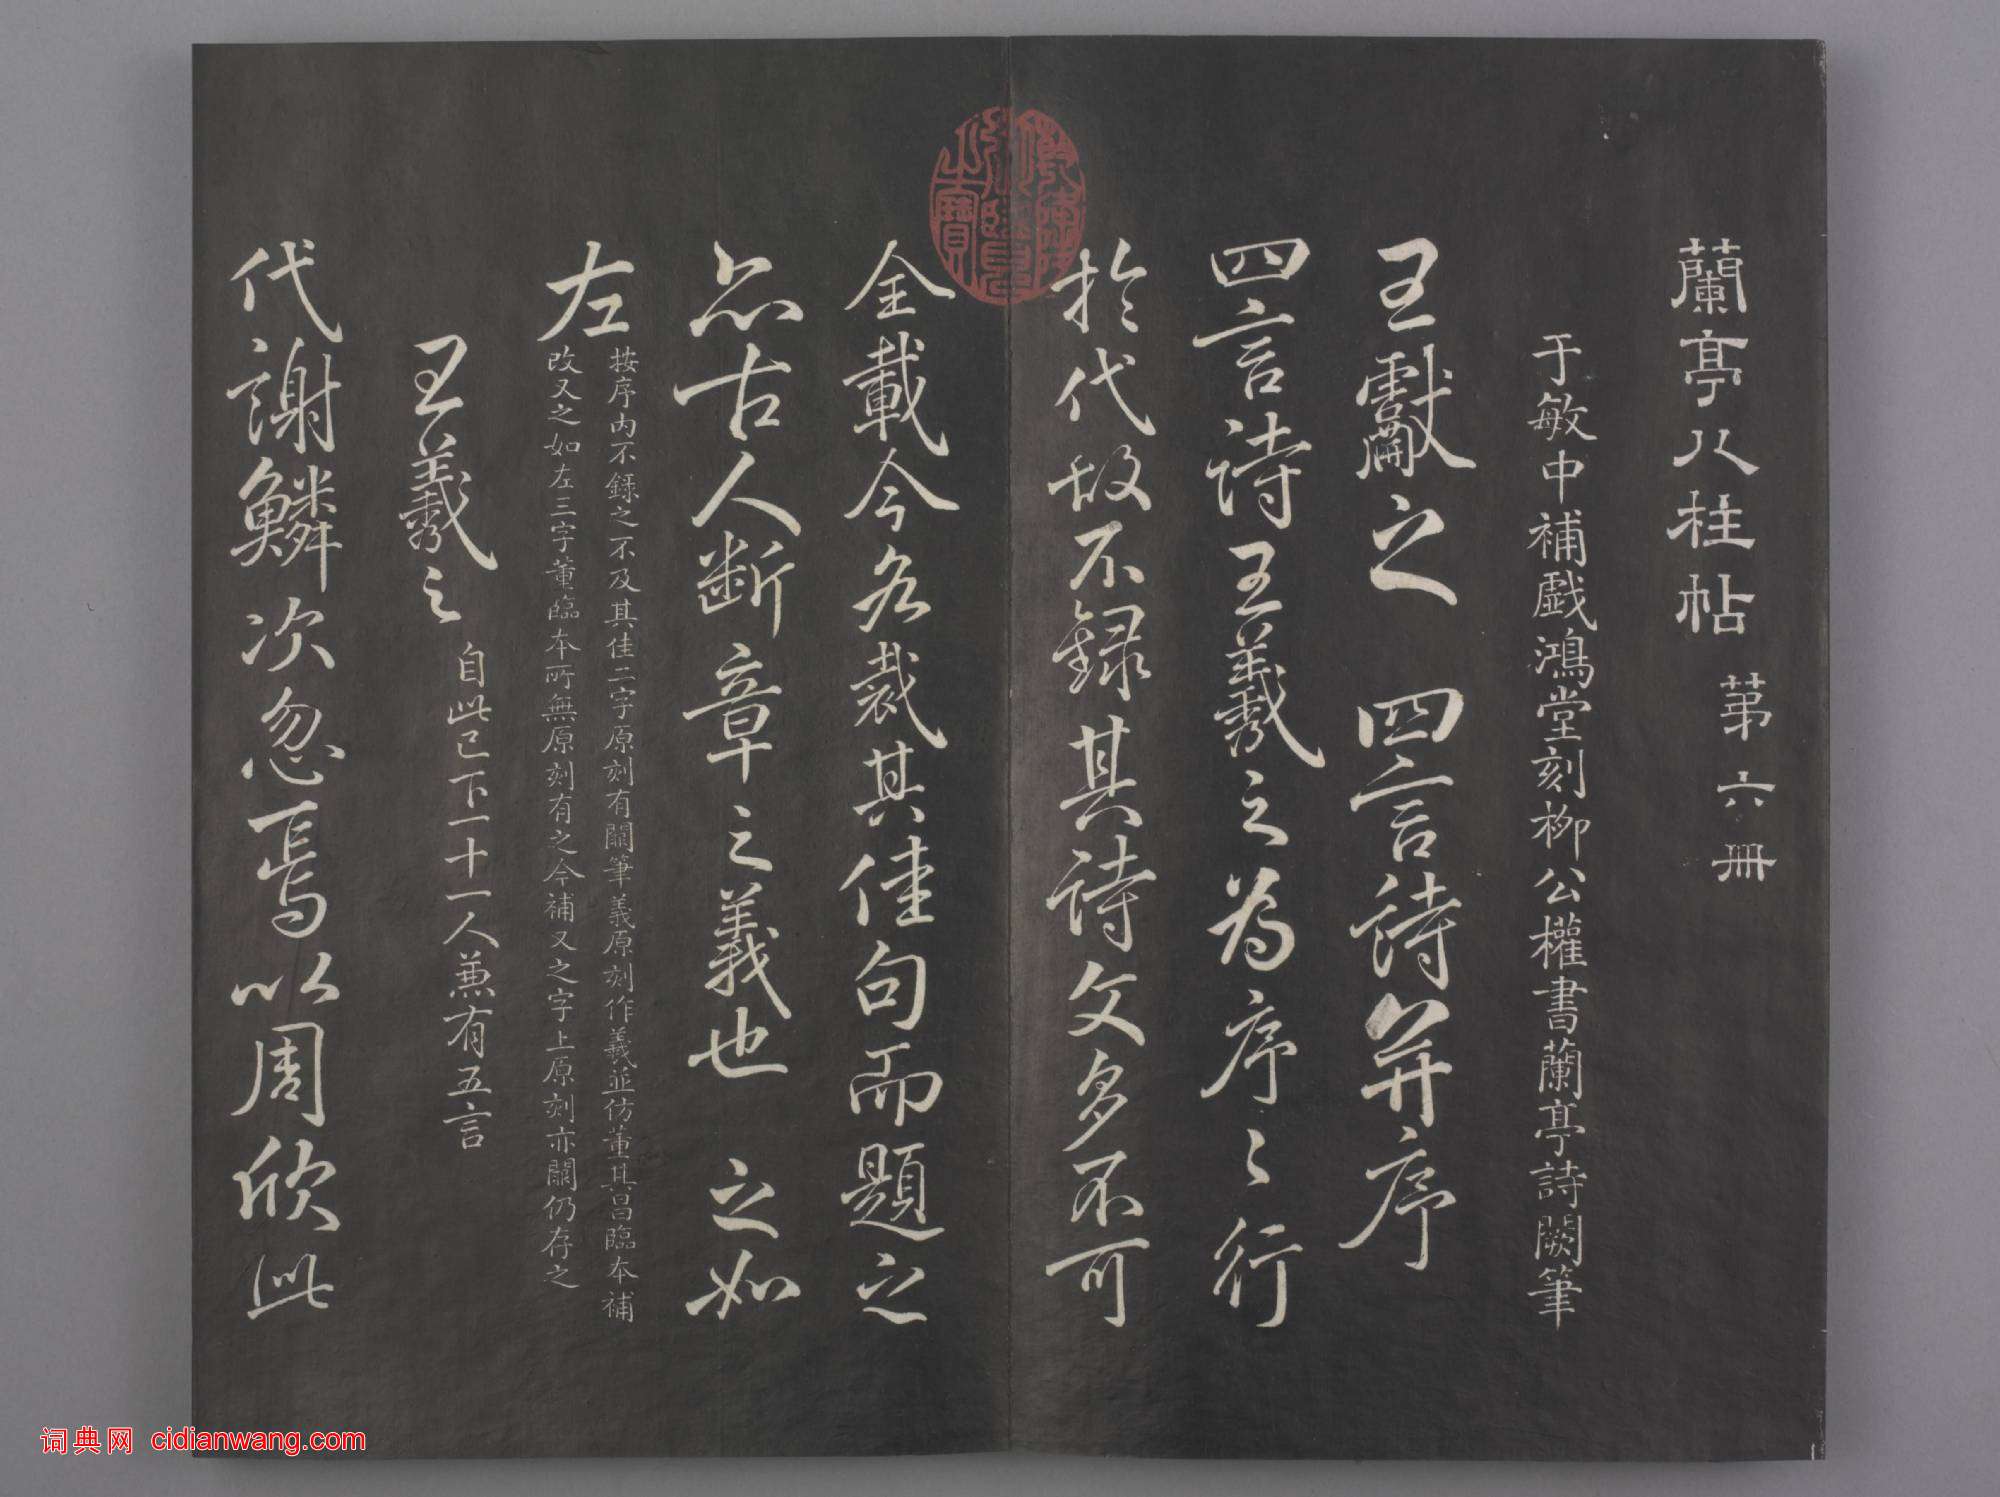 蘭亭八柱帖 苐六冊
于敏中補戲鴻堂刻柳公權書蘭亭詩闕筆
王獻之 四言詩并序
四言詩王羲之為序序行
於代故不録其詩文多不可
全載今各裁其佳句而題之
亦古人断章之義也 之如
左
按序内不録之不及其佳二字原刻有闕筆義原刻作羲並仿董其昌臨本補
改又之如左三字董臨本所無原刻有之今補又之字上原刻亦闕仍存之
王羲之 自此已下一十一人兼有五言
代謝鱗次忽焉以周欣此
词典网 cidianwang.com